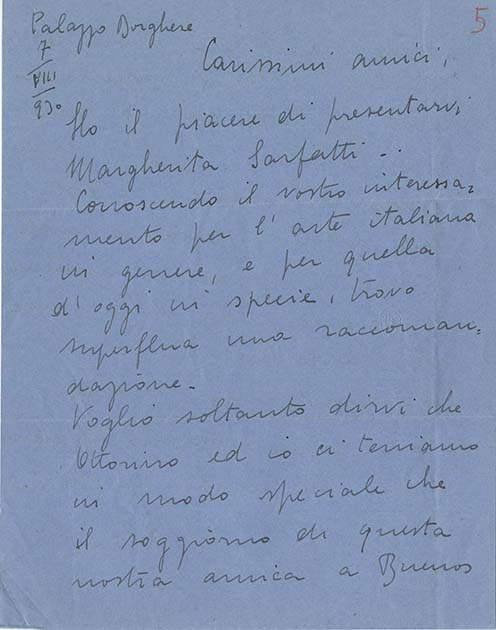 5
Palazzo Borghese
7
VIII
930
Carissimi amici,
Ho il piacere di presentarvi
Margherita Sarfatti -.
Conoscendo il vostro interessa=
mento per l'arte italiana
in genere, e per quella
d'oggi in specie, trovo
superflua una raccoman=
dazione -
Voglio soltanto dirvi che
Ottorino ed io ci teniamo
in modo speciale che
il soggiorno di questa
nostra amica a Buenos